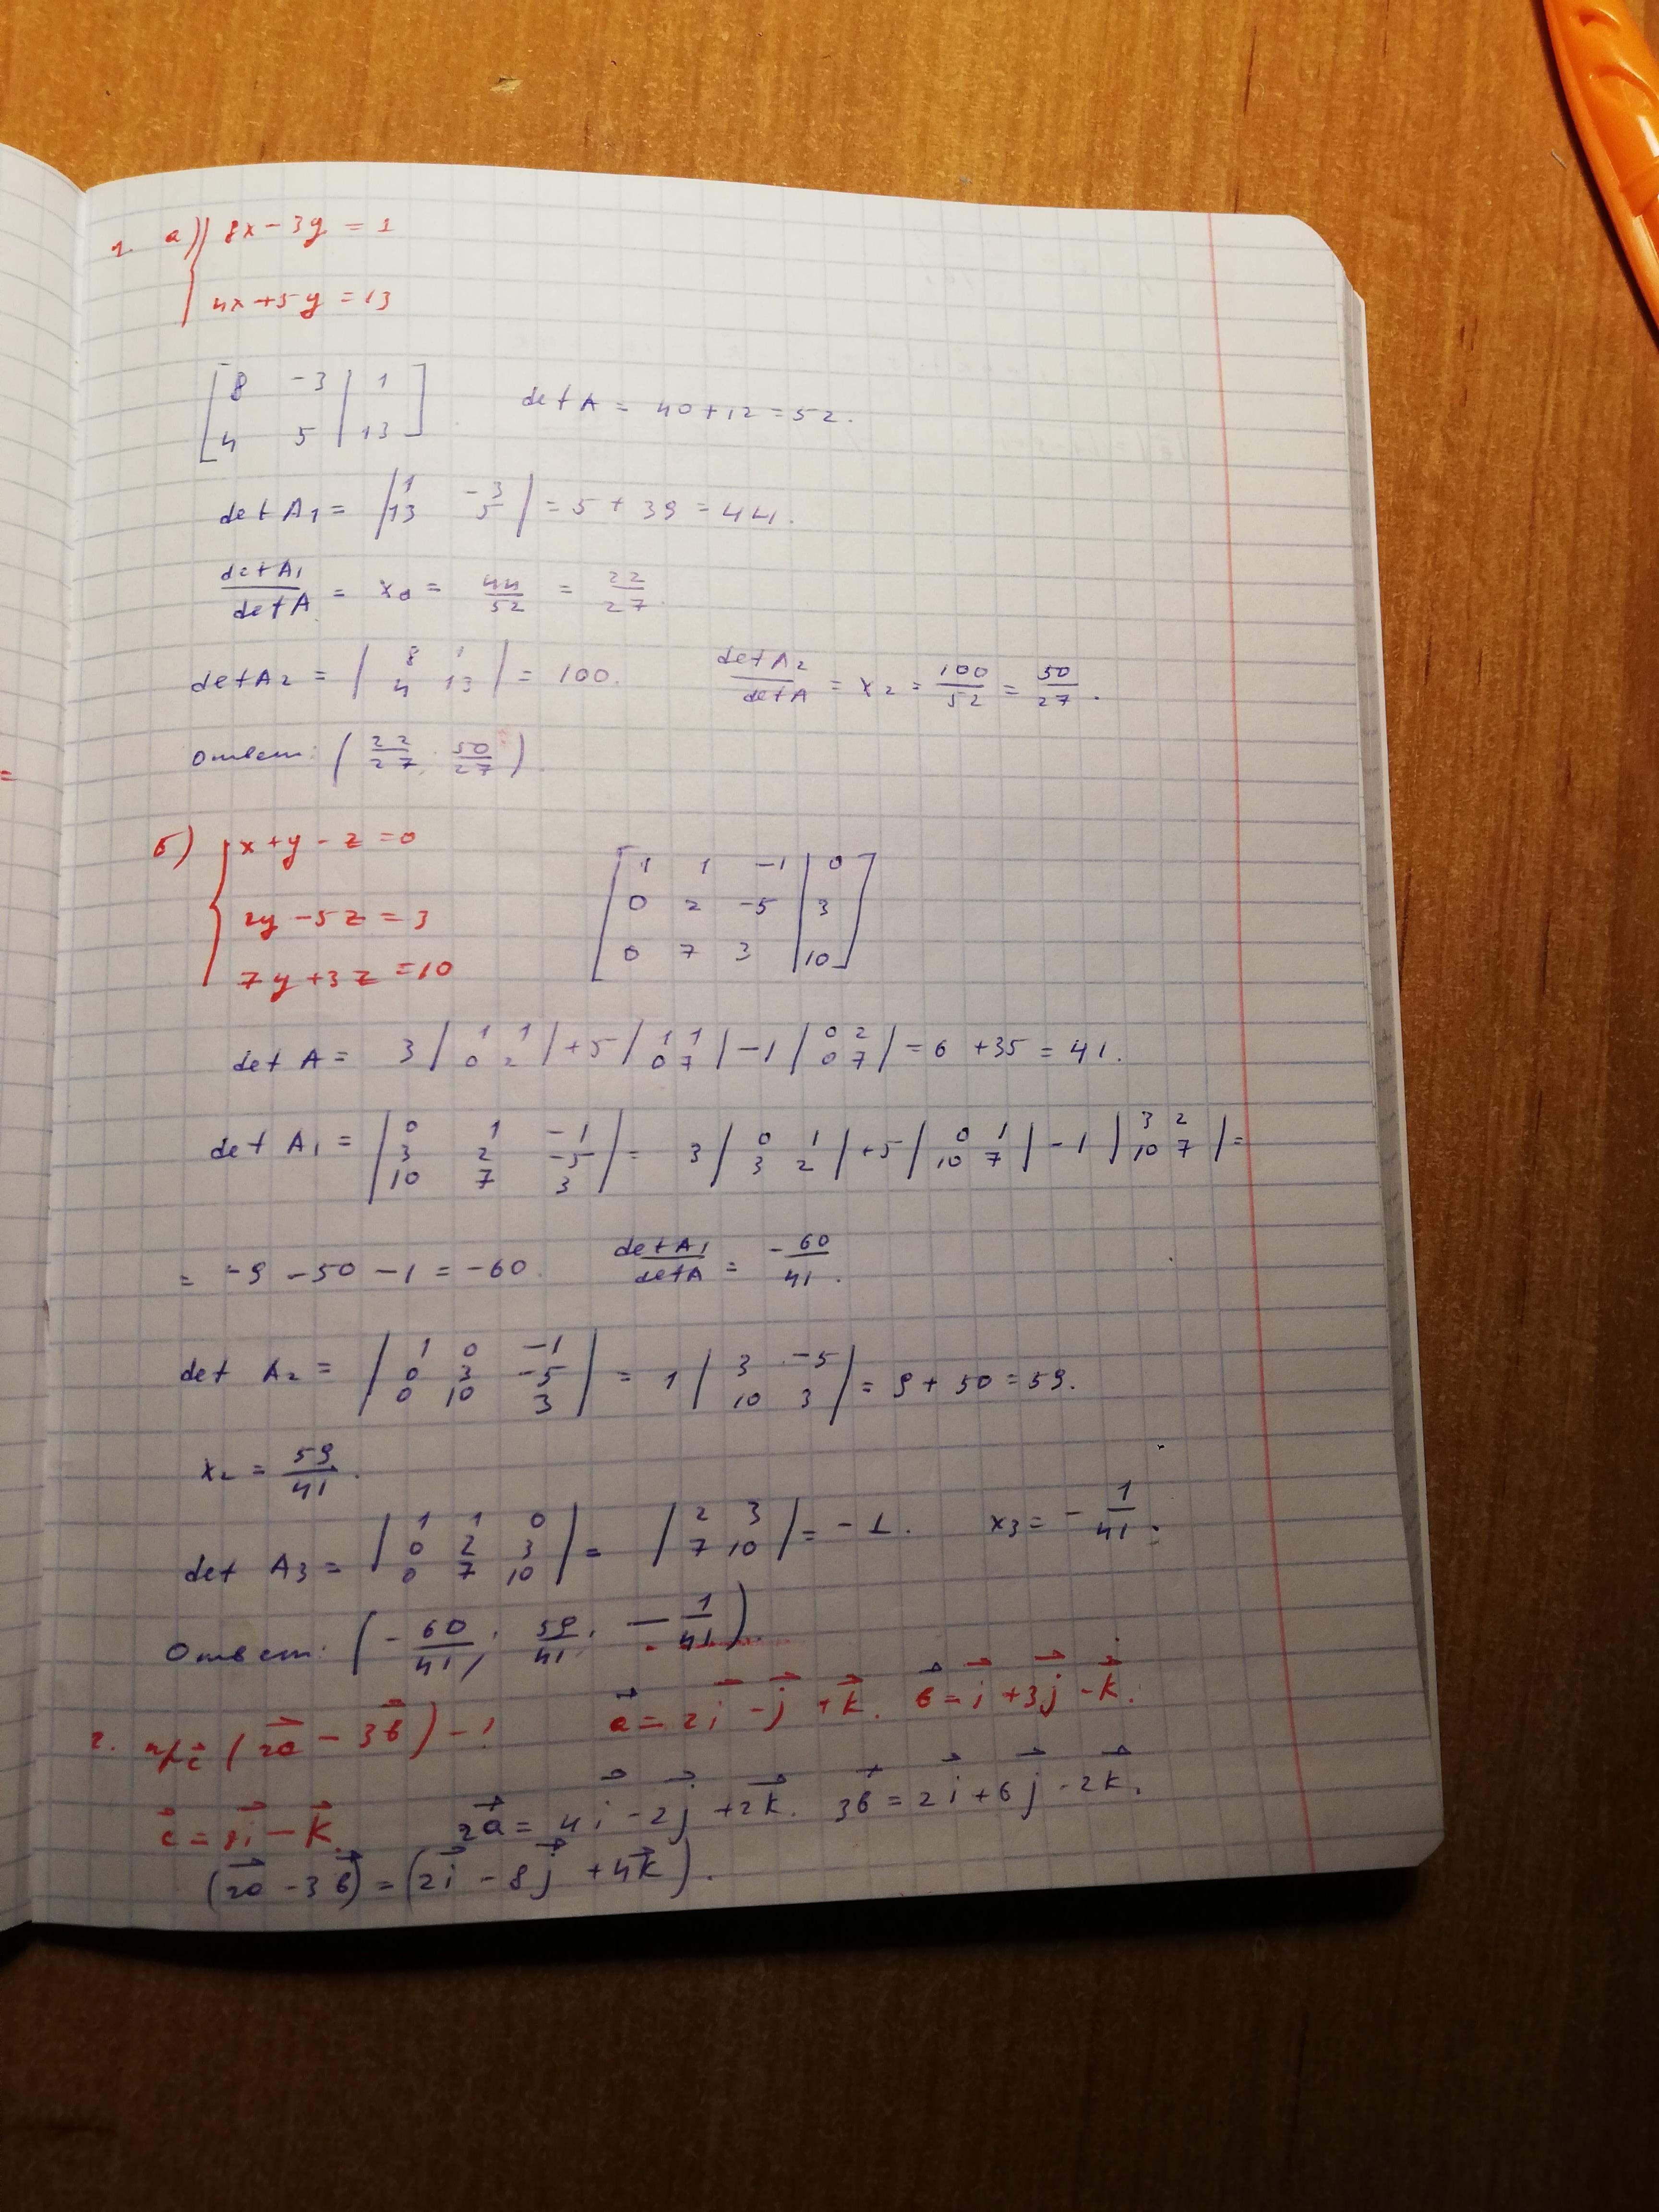 1. а) { 8x - 3y = 1
4x + 5y = 13
[ 8 -3 | 1 ]
[ 4 5 | 13 ]
det A = 40 + 12 = 52.
det A₁ = | 1 -3 ; 13 5 | = 5 + 39 = 44.
det A₁ / det A = x₀ = 44/52 = 22/27.
det A₂ = | 8 1 ; 4 13 | = 100. det A₂ / det A = x₂ = 100/52 = 50/27.
Ответ: (22/27, 50/27).
б) { x + y - z = 0
2y - 5z = 3
7y + 3z = 10
[ 1 1 -1 | 0 ]
[ 0 2 -5 | 3 ]
[ 0 7 3 | 10 ]
det A = 3 | 1 1 ; 0 2 | + 5 | 1 1 ; 0 7 | - 1 | 0 2 ; 0 7 | = 6 + 35 = 41.
det A₁ = | 0 1 -1 ; 3 2 -5 ; 10 7 3 | = 3 | 0 1 ; 3 2 | + 5 | 0 1 ; 10 7 | - 1 | 3 2 ; 10 7 | =
= -9 - 50 - 1 = -60. det A₁ / det A = - 60/41.
det A₂ = | 1 0 -1 ; 0 3 -5 ; 0 10 3 | = 1 | 3 -5 ; 10 3 | = 9 + 50 = 59.
x₂ = 59/41.
det A₃ = | 1 1 0 ; 0 2 3 ; 0 7 10 | = | 2 3 ; 7 10 | = -1. x₃ = - 1/41.
Ответ: (- 60/41, 59/41, - 1/41).
2. пр c⃗ (2a⃗ - 3b⃗) - ! a⃗ = 2i⃗ - j⃗ + k⃗. b⃗ = i⃗ + 3j⃗ - k⃗.
2a⃗ = 4i⃗ - 2j⃗ + 2k⃗. 3b⃗ = 2i⃗ + 6j⃗ - 2k⃗.
(2a⃗ - 3b⃗) = (2i⃗ - 8j⃗ + 4k⃗).